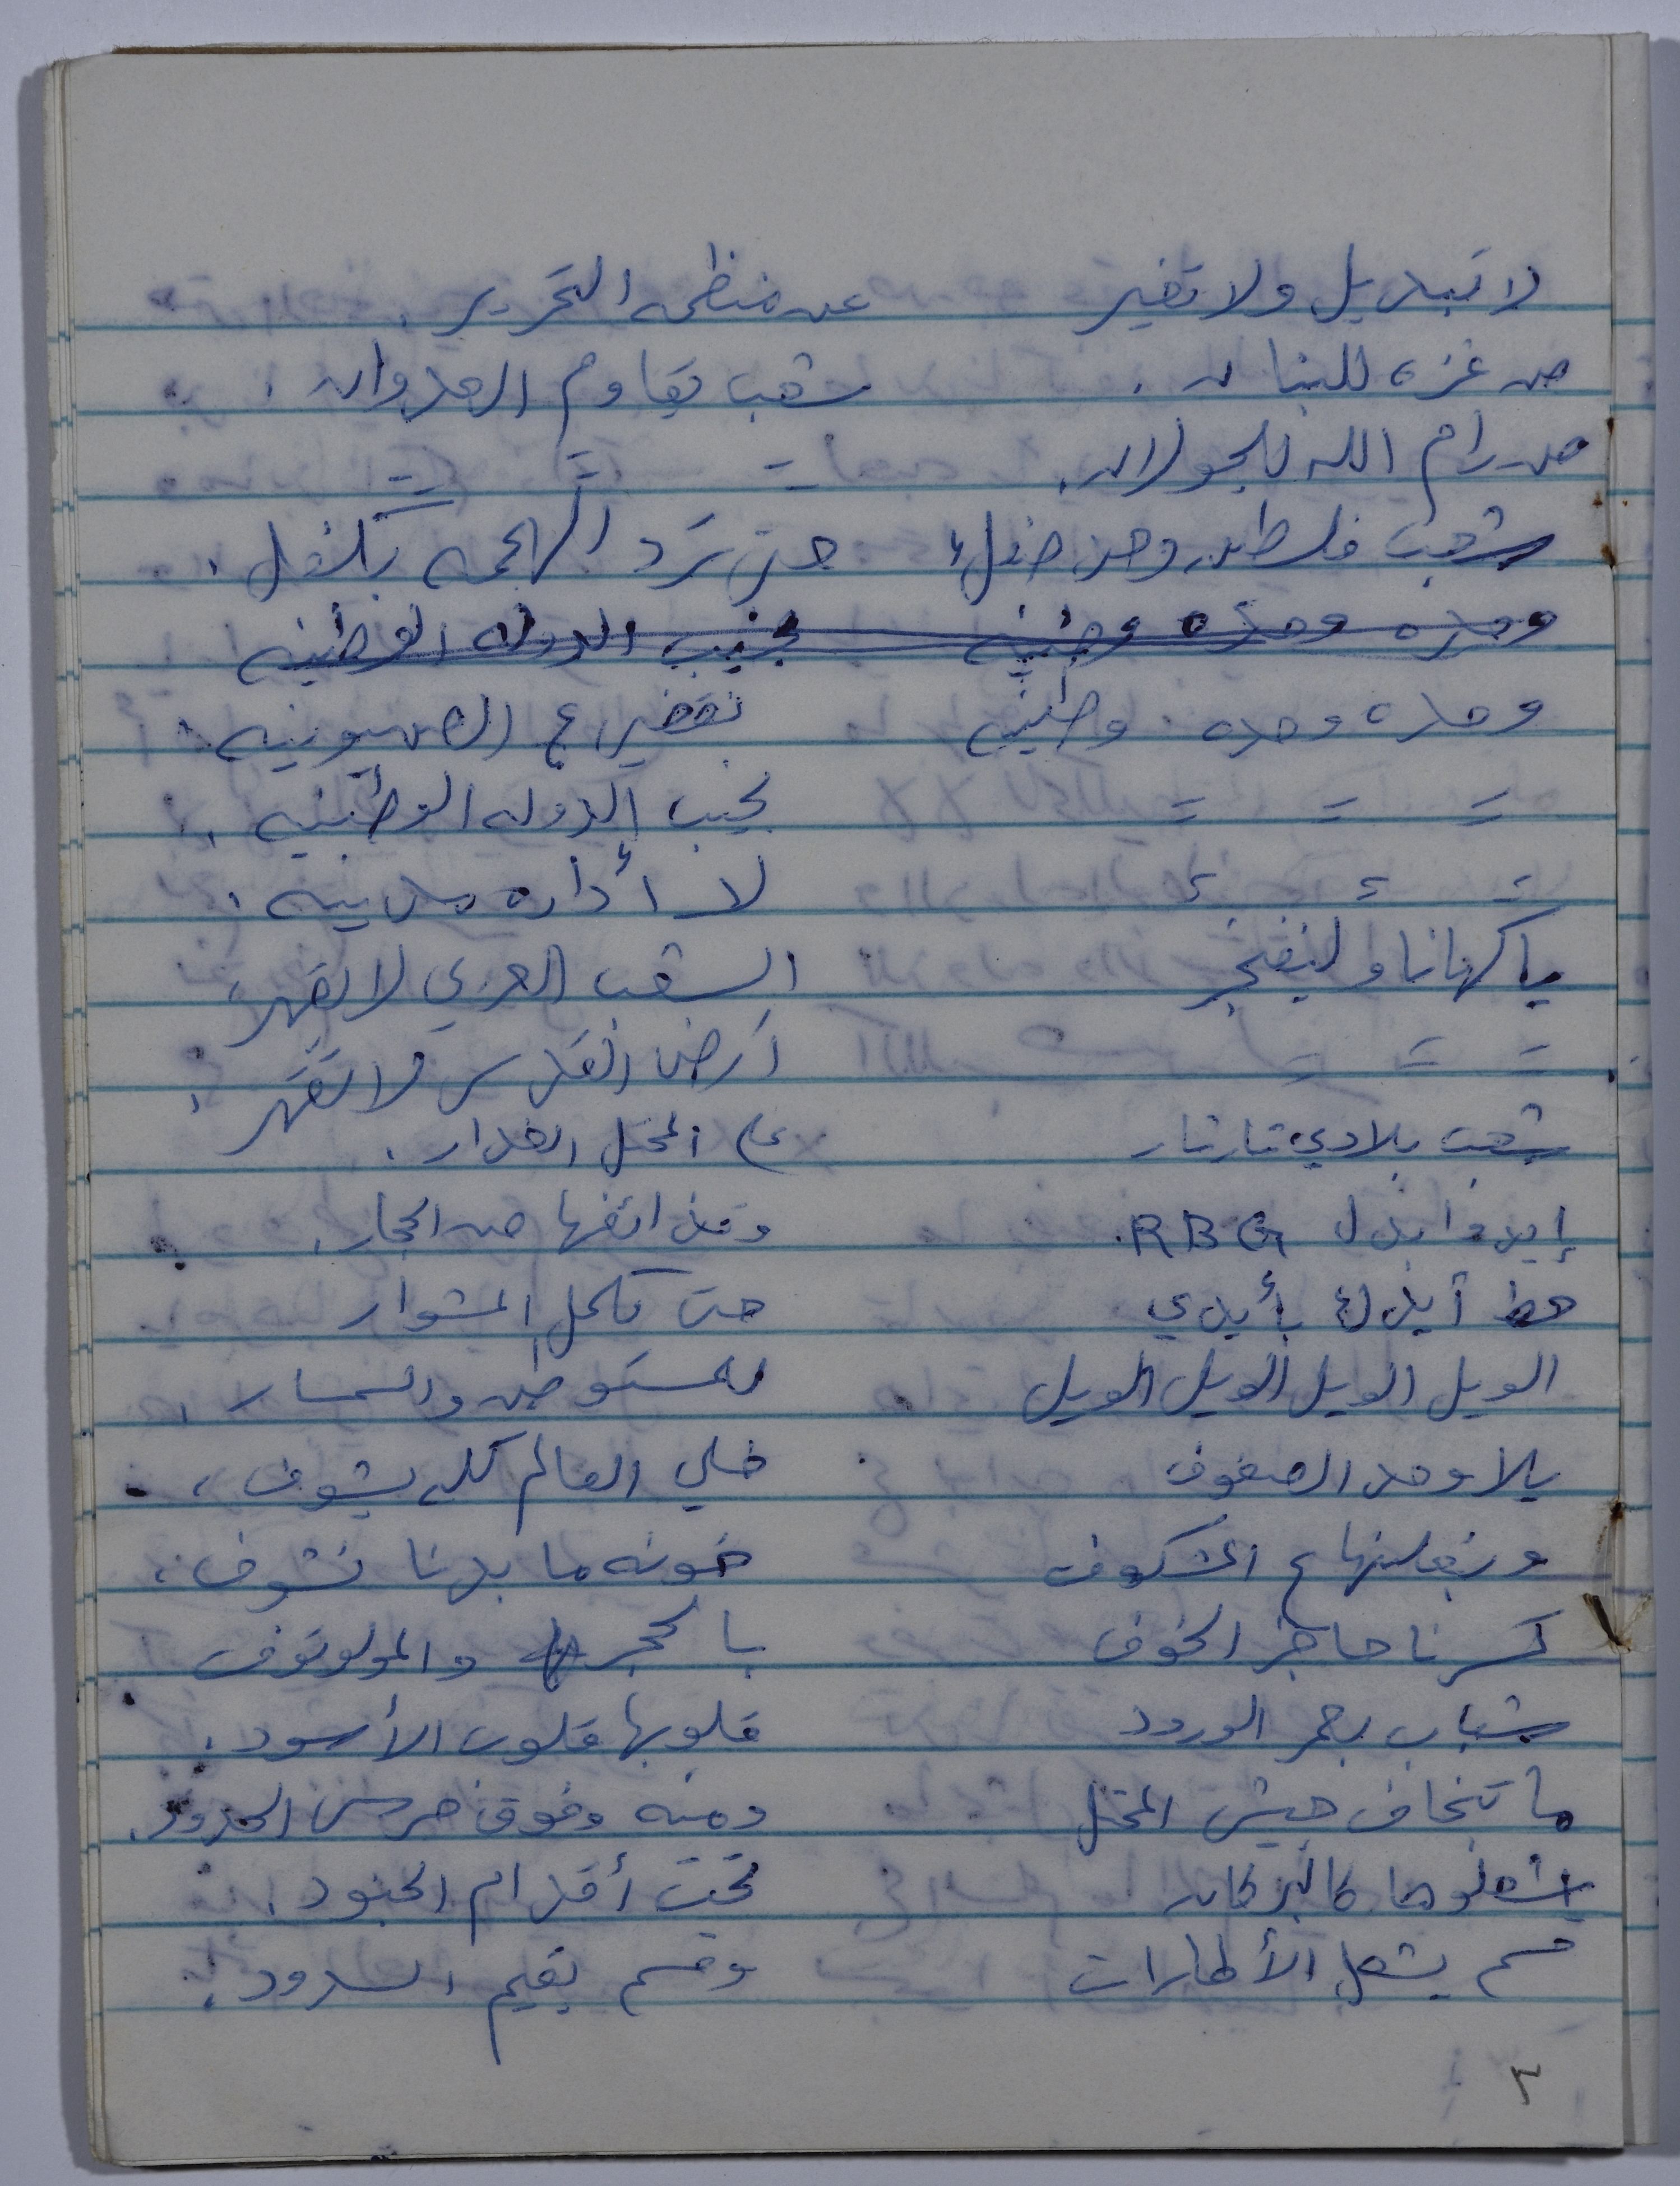 لا تبديل ولا تغير عن منظمه التحرير.
من غزه للبنان. شعب يقاوم العدوان.
من رام الله للجولان. = = =
شعب فلسطين وحد نضلك حتى ترد الهجمه بتضل.
وحده وحده وطنيه نجيب الدوله الوطنيه
وحده وحده وطنيه نقضي ع الصهيونيه.
= = = نجيب الدوله الوطنيه.
= = = لا أداره مدنيه.
يا كهانا ولينفجر الشعب العربي لا يقهر.
= = = أرض القدس لا تقهر.
شعب بلادي ثار ثار على المحتل الغدار.
إيدو ابدل RBG. وقذائفها من الحجار.
حط أيدك بأيدي حتى نكمل المشوار
الويل الويل الويل الويل للمستوطن والسمسار.
يلا وحد الصفوف خلي العالم كله يشوف.
ونعلنها ع المكشوف خونه ما بدنا نشوف.
كسرنا حاجز الخوف بالحجر والمولوتوف
شباب بعمر الورود قلوبها قلوب الأسود.
ما تخاف جيش المحتل ومنه وفوق حرس الحدود.
اشعلوها كالبركان تحت أقدام الجنود.
قسم يشعل الأطارات وقسم يقيم السدود.
٢